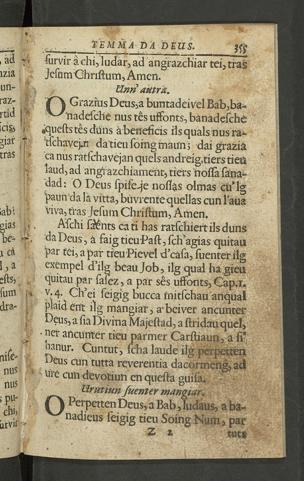 TEMMA DA DEUS. 355
survir à chi, ludar, ad angrazchiar tei, tras
Jesum Christum, Amen.
Unn' autra.
O Grazius Deus, a buntadeivel Bab, ba-
nadesche nus tês uffonts, banadesche
quests tês duns à beneficis ils quals nus ra-
tschavejn da tieu soing maun; dai grazia
ca nus ratschavejan quels andreig, tiers tieu
laud, ad angrazchiament, tiers nossa sana-
dad: O Deus spise je nossas olmas cu'lg
paun da la vitta, buvrente quellas cun l'aua
viva, tras Jesum Christum, Amen.
Aschi ca ti has ratschiert ils duns
da Deus, a faig tieu Past, sch'agias quitau
par tei, a par tieu Pievel d'casa, suenter ilg
exempel d'ilg beau Job, ilg qual ha gieu
quitau par salez, a par sês uffonts, Cap. 1.
v. 4. Ch'ei seigig bucca mitschau anqual
plaid ent ilg mangiar, a beiver ancunter
Deus, a sia Divina Majestad, a stridau quel,
ner ancunter tieu parmer Carstiaun, a si'
hanur. Cuntut, scha laude ilg perpetten
Deus cun tutta reverentia dacormeng, ad
ure cun devotiun en questa guisa.
Urutiun suenter mangiar.
O Perpetten Deus, a Bab, ludaus, a ba-
nadieus seigig tieu Soing Num, par
Z 2 tuts